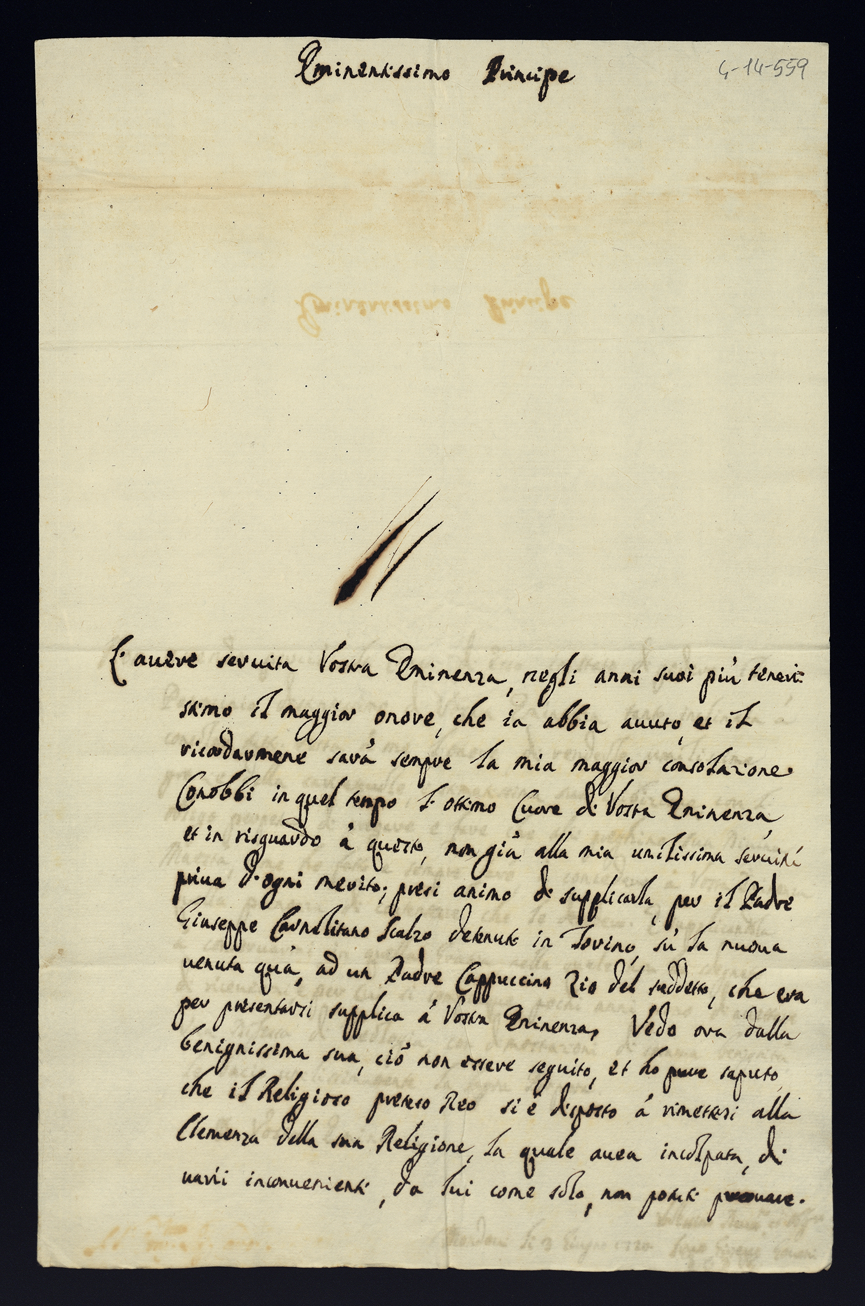 Eminentissimo Principe
4-14-559
L'avere servita Vostra Eminenza, negli anni suoi più teneri:
stimo il maggior onore, che ia abbia avuto, et il
ricordarmene sarà sempre la mia maggior consolazione.
Conobbi in quel tempo l'ottimo Cuore di Vostra Eminenza,
et in risguardo à questo, non già alla mia umilissima servitù
priva d'ogni merito; presi animo di supplicarla, per il Padre
Giuseppe Carmelitano Scalzo detenuto in Torino, sù la nuova
venuta quà, ad un Padre Cappuccino Zio del suddetto, che era
per presentarsi supplica à Vostra Eminenza, Vedo ora dalla
benignissima sua, ciò non essere seguito, et ho pure saputo,
che il Religioso preteso Reo si è disposto à rimettersi alla
Clemenza della sua Religione, la quale avea incolpata, di
varii inconvenienti, da lui come solo, non potuti provare.